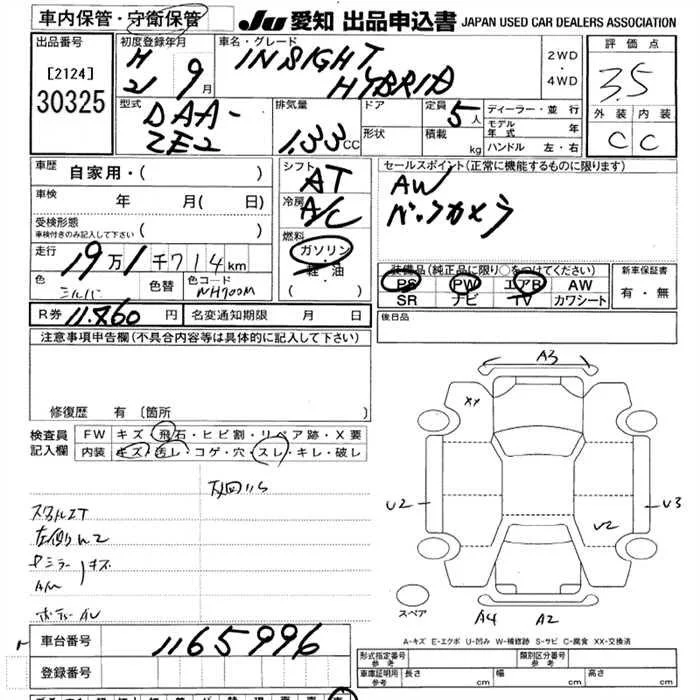 車内保管・守衛保管
JU 愛知 出品申込書 JAPAN USED CAR DEALERS ASSOCIATION
出品番号
[2124]
30325
初度登録年月
H
21 9月
車名・グレード
INSIGHT
HYBRID
2WD
・
4WD
評価点
3.5
外装 内装
C C
型式
DAA-
ZE2
排気量
1.33 CC
ドア
形状
定員 5人
積載 kg
ディーラー・並行
モデル年式 年
ハンドル 左・右
車歴 自家用・( )
車検 年 月(日)
受検形態
車検付きのみ記入して下さい ( )
走行 19万1千714km
色 シルバー 色替 色コード NH700M
シフト
AT
冷房
A/C
燃料
ガソリン
軽油
( )
セールスポイント(正常に機能するものに限ります)
AW
バックカメラ
装備品(純正品に限り○をつけてください)
PS PW エアB AW
SR ナビ TV カワシート
新車保証書
有・無
R券 11.460円 名変通知期限 月 日
後日品
注意事項申告欄(不具合内容等は具体的に記入して下さい)
修復歴 有〔箇所
検査員
記入欄
FW キズ・飛石・ヒビ割・リペア跡・X要
内装 キズ・汚レ・コゲ・穴・スレ・キレ・破レ
A3
XX
U2
U2
U3
スペア
A4 A2
A-キズ E-エクボ U-凹み W-補修跡 S-サビ C-腐食 XX-交換済
車台番号 1165996
登録番号
形式指定番号
参考
類別区分番号
参考
車庫証明用
参考
長さ cm 幅 cm 高さ cm